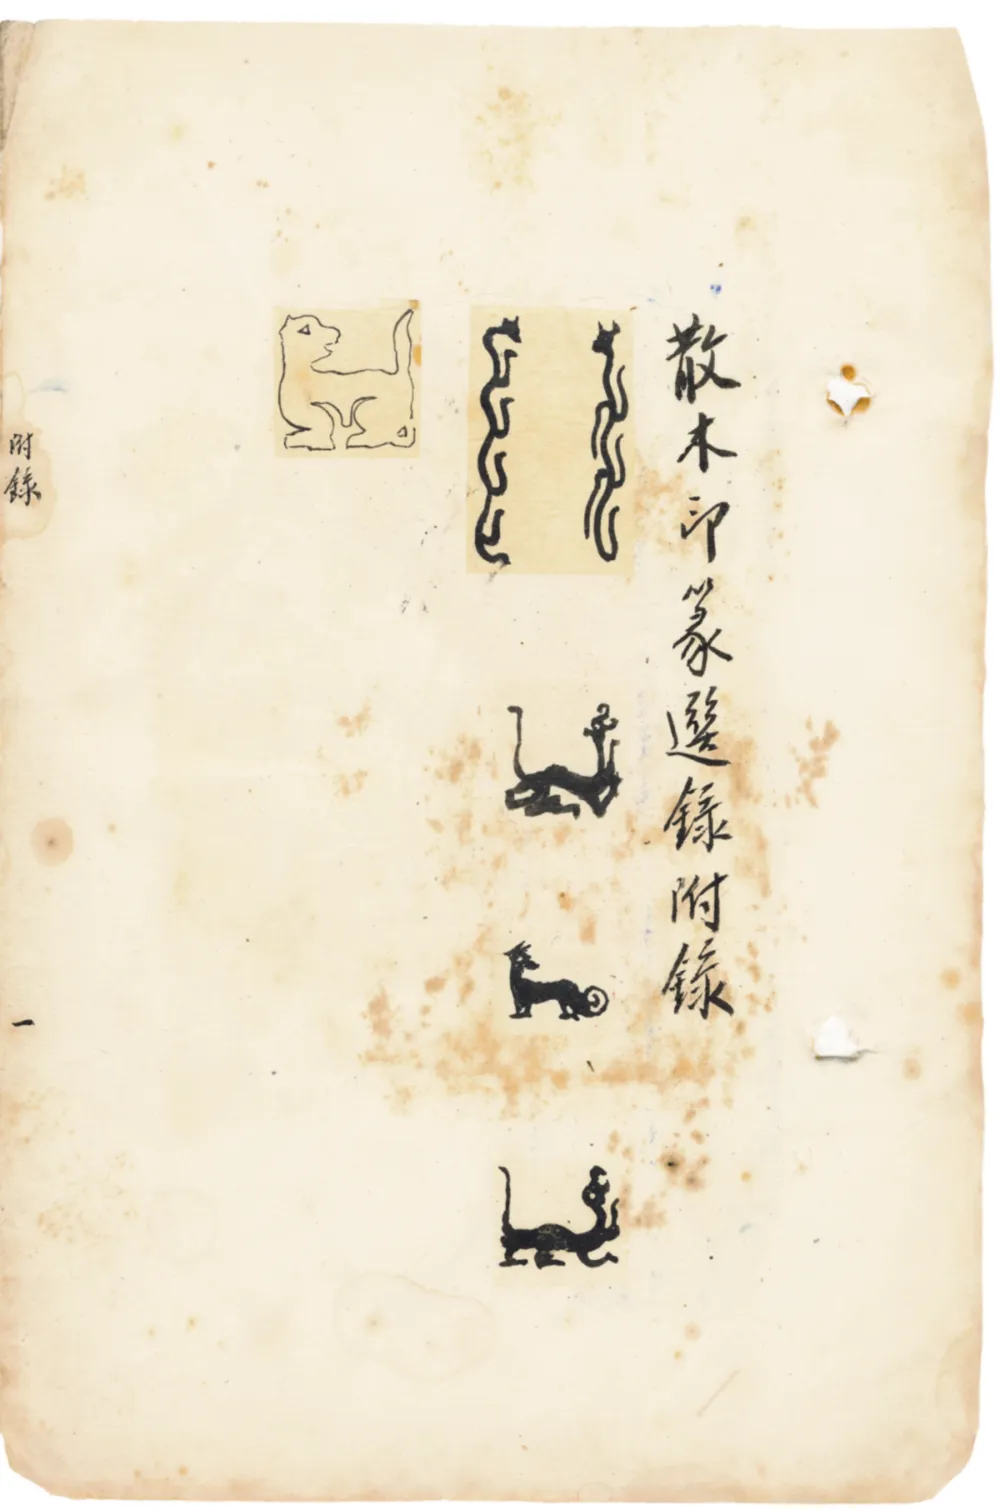 散木印篆選錄附錄
附錄
一